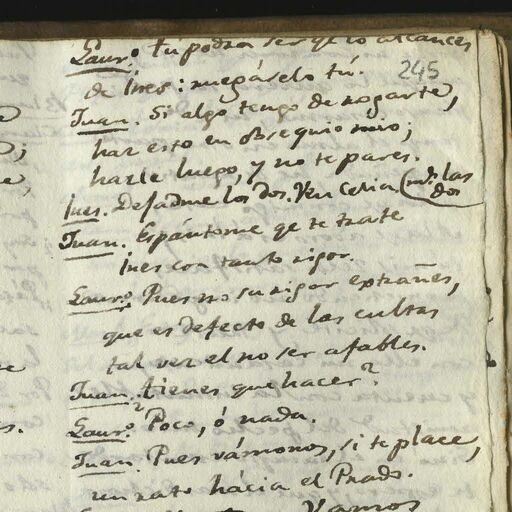 Laur.o tú podrá ser qe lo alcances
de Ines: ruegárselo tú.
245
Juan. Si algo tengo de rogarte,
haz esto en obsequio mio;
hazle luego, y no te pares.
Ines. Dejadme los dos. Ven Celia (vse. las
dos
Juan. Espántome qe te trate
Ines con tanto rigor.
Laur.o Pues no su rigor extrañes,
que es defecto de las cultas
tal vez el no ser afables.
Juan. tienes que hacer?
Laur.o Poco, ó nada.
Juan. Pues vámonos, si te place,
un rato hácia el Prado.
Vamos